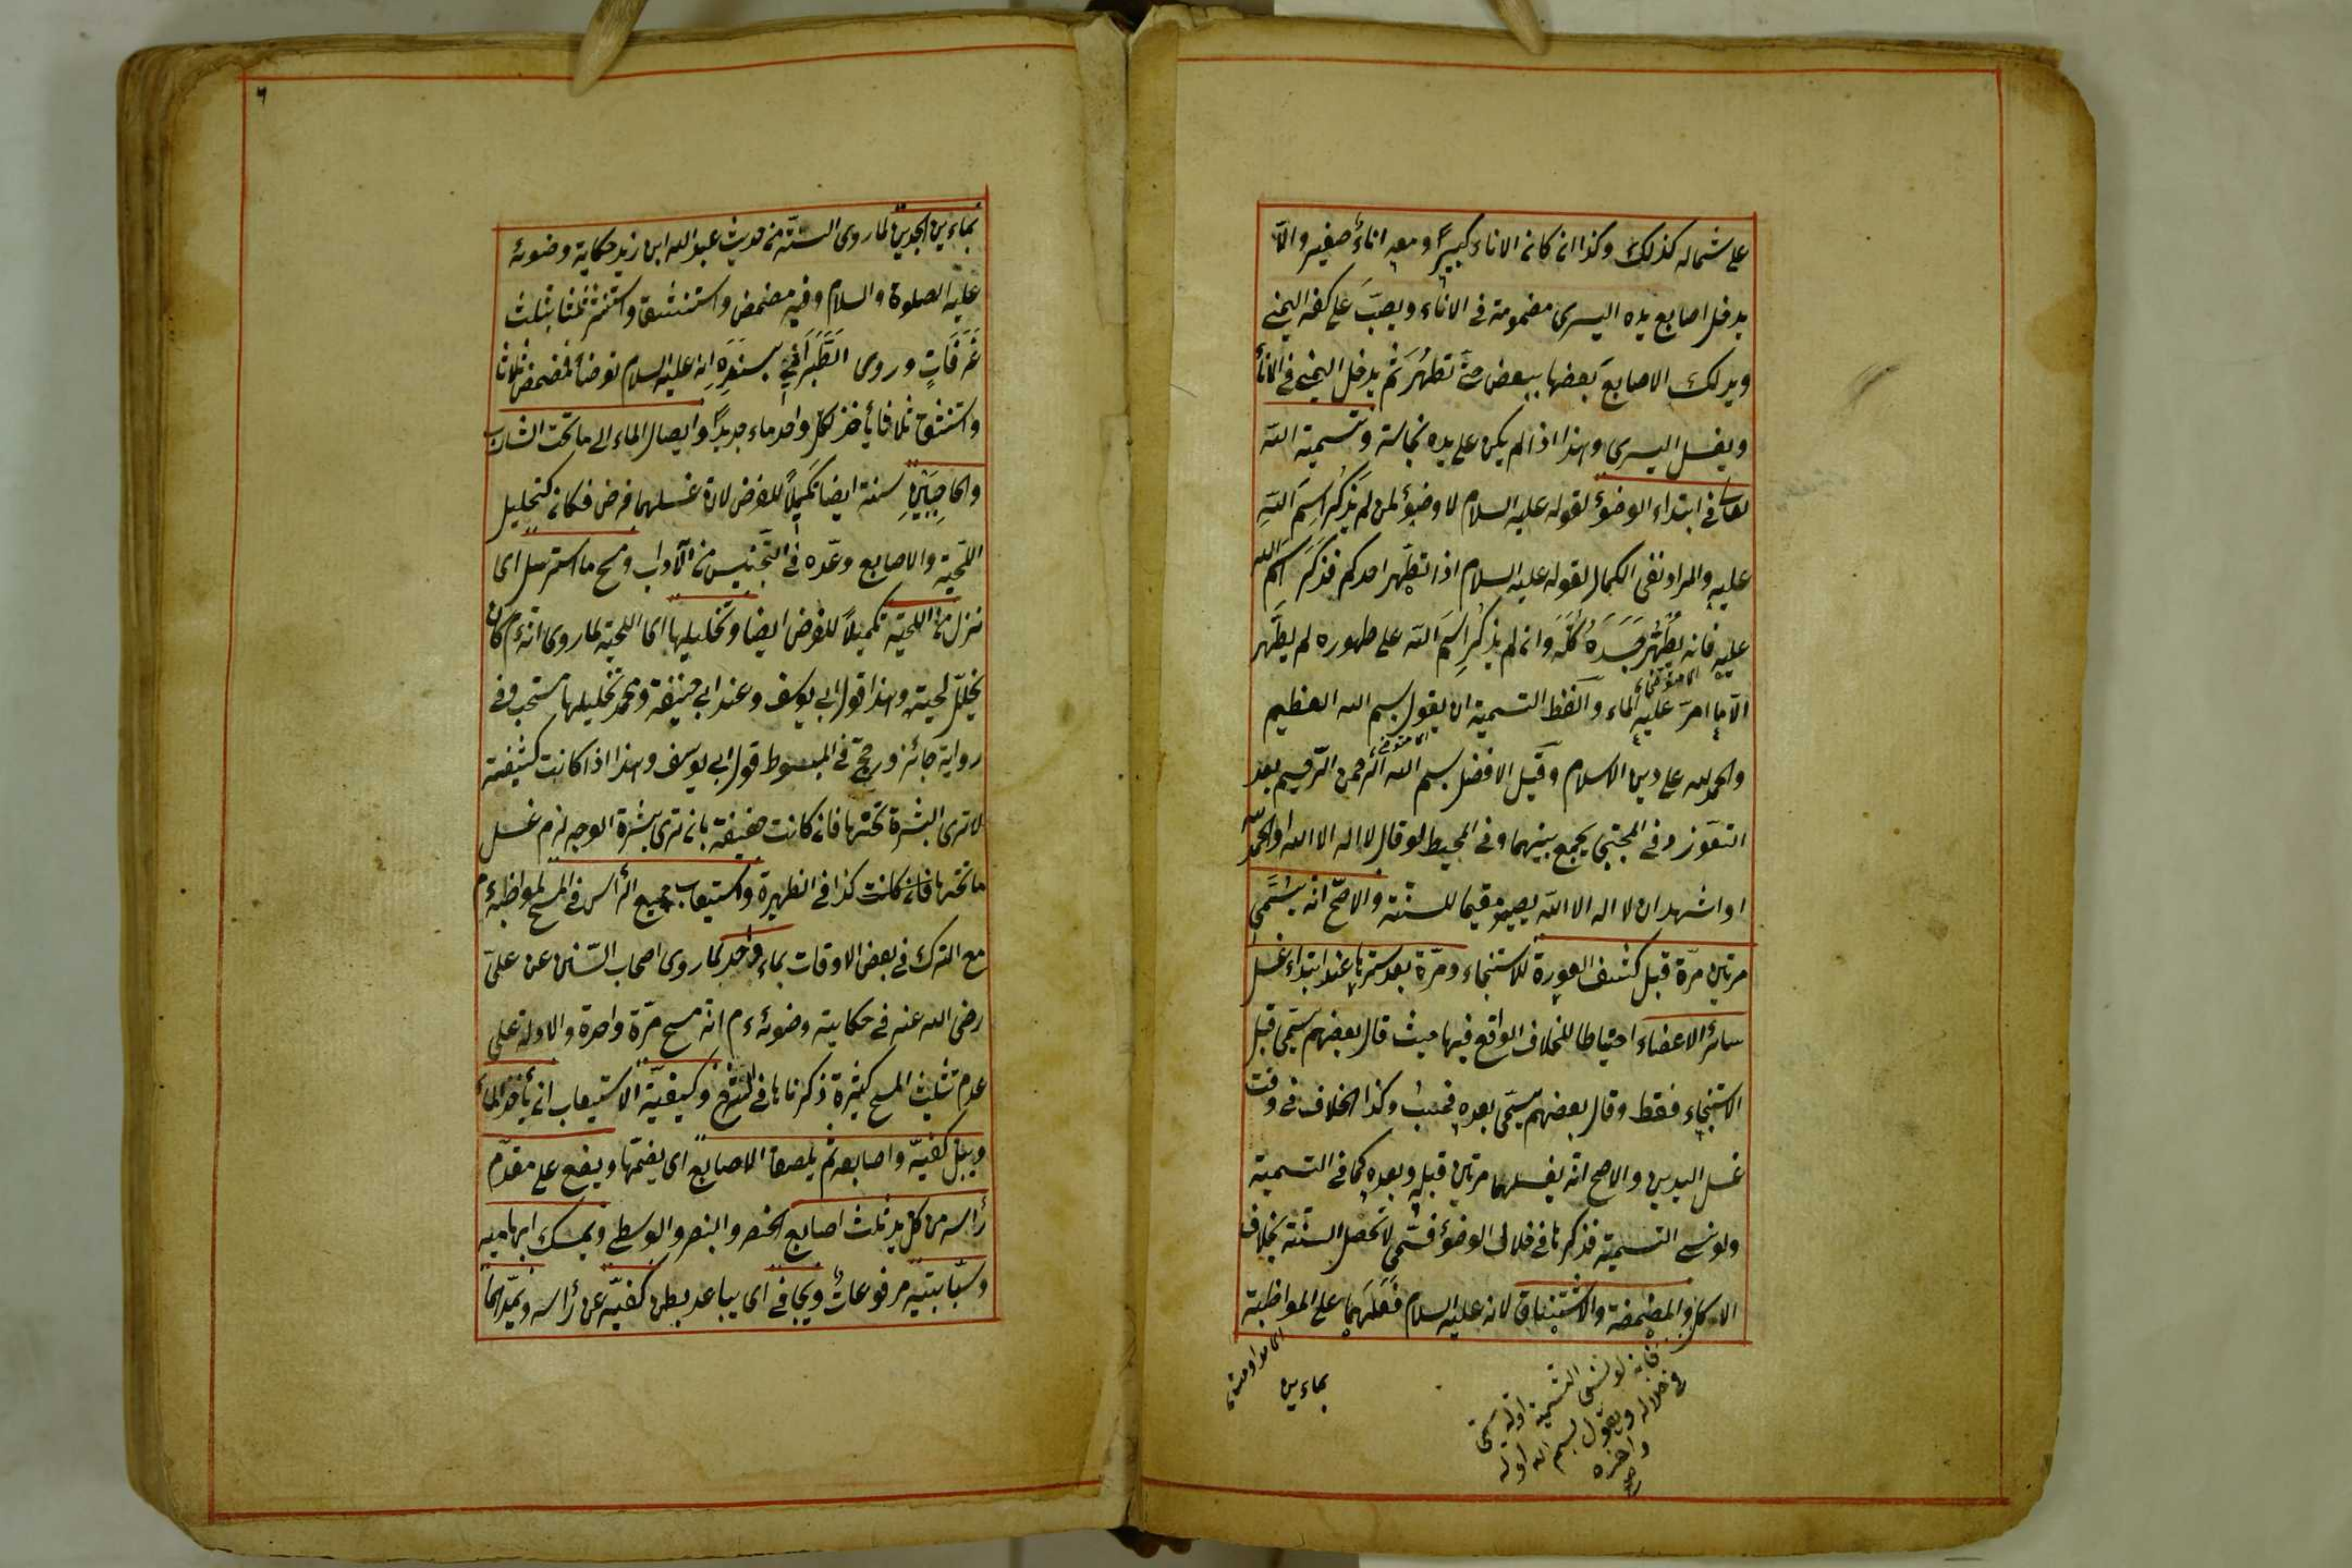 على شماله كذلك وكذا ان كان الاناء كبيرًا ومعه اناءٌ صغير والّا
يدخل اصابع يده اليسرى مضمومة فى الاناء ويصبّ على كفه اليمنى
ويدلك الاصابع بعضها ببعض حتّى تطهر ثم يدخل اليمنى فى الاناء
ويغسل اليسرى وهذا اذا لم يكن على يده نجاسة وتسمية الله
تعالى فى ابتداء الوضوء لقوله عليه السلام لا وضوء لمن لم يذكر اسم الله
عليه والمراد نفى الكمال لقوله عليه السلام اذا تطهّر احدكم فذكر اسم الله
عليه فانه يطهر جسده كله وان لم يذكر اسم الله على طهوره لم يطهر
الّا ما امرّ عليه الماء ولفظ التسمية ان يقول بسم الله العظيم
والحمد لله على دين الاسلام وقيل الافضل بسم الله الرحمن الرّحيم بعد
التعوّذ وفى المجتبى يجمع بينهما وفى المحيط لو قال لا اله الا الله او الحمد لله
او اشهد ان لا اله الا الله يصير مقيما للسنّة والاصحّ انه يسمّى
مرتين مرّة قبل كشف العورة للاستنجاء ومرّة بعد سترها عند ابتداء غسل
سائر الاعضاء احتياطا للخلاف الواقع فيها حيث قال بعضهم يسمّى قبل
الاستنجاء فقط وقال بعضهم يسمّى بعده فحسب وكذا الخلاف فى وقت
غسل اليدين والاصح انّه يغسلهما مرتين قبله وبعده كما فى التسمية
ولو نسى التسمية فذكرها فى خلال الوضوء فسمّى لا تحصل السنّة بخلاف
الاكل والمضمضة والاستنشاق لانه عليه السلام فعلهما على المواظبة
فانه لو نسى التسمية اوله يسمّى
فى خلاله ويقول بسم الله اوله
واخره
بماءين
بماءين جديدين لما روى الستّة من حديث عبد الله ابن زيد حكاية وضوئه
عليه الصلوة والسلام وفيه مضمض واستنشق واستنثر ثلثا بثلث
غرفات وروى الطّبرانى بسنده انه عليه السلام توضأ فمضمض ثلاثا
واستنشق ثلاثا يأخذ لكل واحد ماء جديدًا وايصال الماء الى ما تحت الشارب
والحاجبين سنة ايضا تكميلاً للفرض لان غسلهما فرض فكان كتخليل
اللّحية والاصابع وعدّه فى التجنيس من الآداب ومسح ما استرسل اى
نزل من اللحية تكميلاً للفرض ايضا وتخليلها اى اللحية لما روى انّه ءم كان
يخلّل لحيته وهذا قول ابى يوسف وعند ابى حنيفة ومحمد تخليلها مستحب وفى
رواية جائز ورجّح فى المبسوط قول ابى يوسف وهذا اذا كانت كثيفة
لا ترى البشرة تحتها فان كانت خفيفة بان ترى بشرة الوجه لزم غسل
ما تحتها فان كانت كذا فى الظهيرة واستيعاب جميع الرّأس فى المسح لمواظبته ءم
مع الترك فى بعض الاوقات بماء واحد لما روى اصحاب السّنن عن علىّ
رضى الله عنه فى حكاية وضوئه ءم انّه مسح مرّة واحدة والادلة على
عدم تثليث المسح كثيرة ذكرناها فى الشرح وكيفيّة الاستيعاب ان يأخذ الماء
ويبلّ كفيّه واصابعه ثم يلصق الاصابع اى يضمّها ويضع على مقدّم
رأسه من كل يد ثلث اصابع الخنصر والبنصر والوسطى ويمسك ابهاميه
وسبّابتيه مرفوعات ويجافى اى يباعد بطن كفيّه عن رأسه ويمدّهما